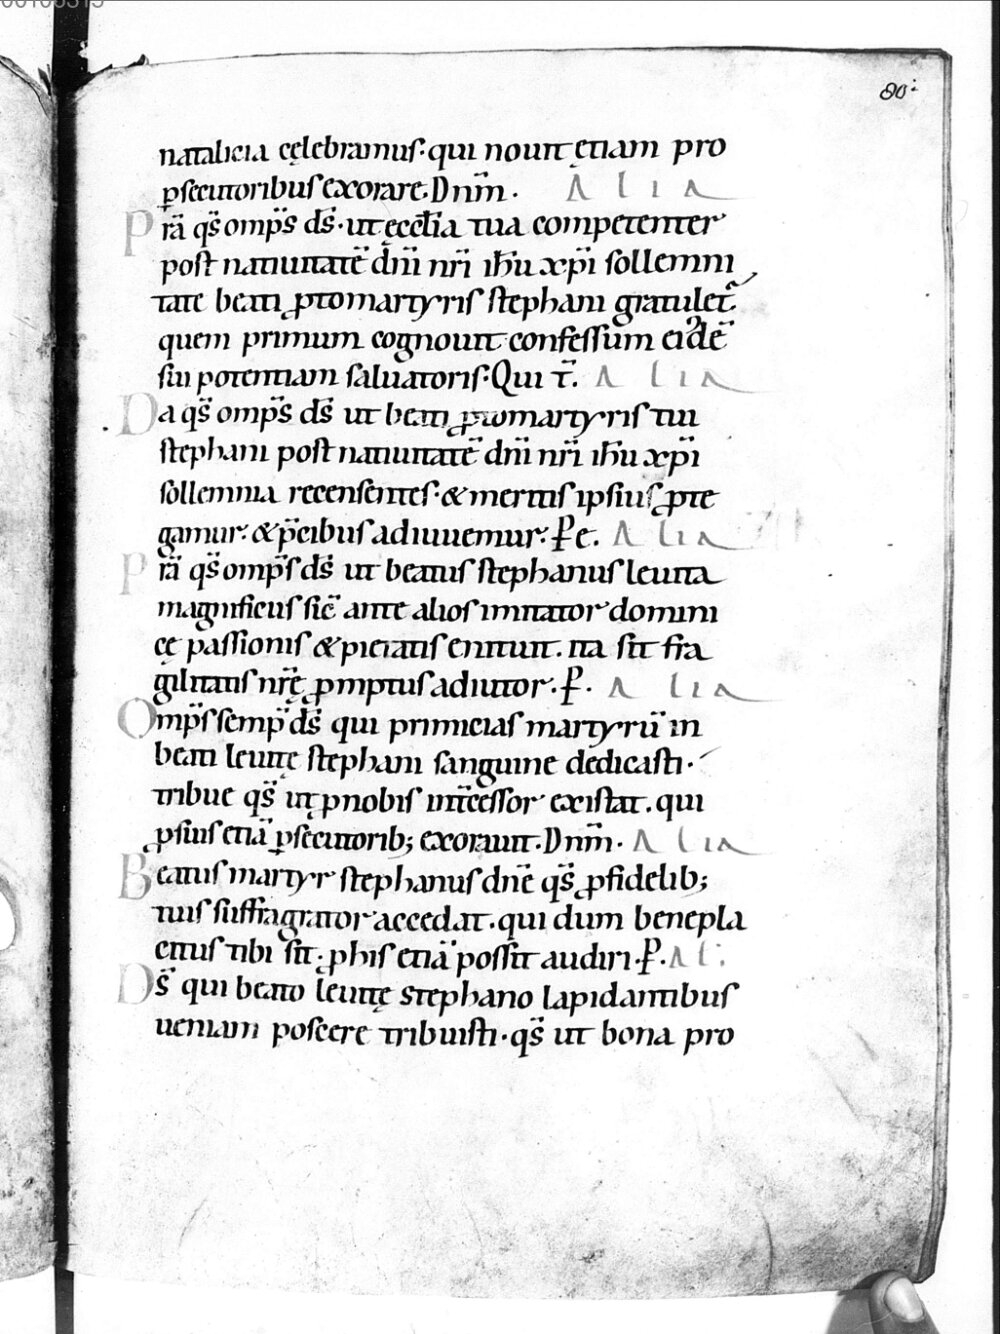 80.
natalicia cęlebramus. qui nouit ętiam pro
ꝑsecutoribus exorare. Dnm̄. ALIA
Prā qs̄ omps̄ ds̄. ut ęccl̄ia tua competenter
post natiuitatē dn̄i nr̄i ih̄u xp̄i sollemni
tate beati ꝓtomartyris stephani gratulet̄.
quem primum cognouit confessum eidē
sui potentiam saluatoris. Qui t̄. ALIA
Da qs̄ omps̄ ds̄ ut beati ꝓtomartyris tui
stephani post natiuitatē dn̄i nr̄i ih̄u xp̄i
sollemnia recensentes. & meritis ipsius ꝓte
gamur. & p̄cibus adiuuemur. P̄e. ALIA
Prā qs̄ omps̄ ds̄ ut beatus stephanus leuita
magnificus sic̄ ante alios imitator domini
cę passionis & pietatis enituit. ita sit fra
gilitatis nrē̄ ꝓmptus adiutor. ꝑ. ALIA
Omps̄ semp̄ ds̄ qui primicias martyrū in
beati leuitę stephani sanguine dedicasti.
tribue qs̄ ut ꝓ nobis int̄cessor existat. qui
ꝓ suis etiā ꝑsecutorib; exorauit. Dnm̄. ALIA
Beatus martyr stephanus dn̄e qs̄ ꝓ fidelib;
tuis suffragrator accedat. qui dum benepla
citus tibi sit. ꝓ his etiā possit audiri. ꝑ. AL.
Ds̄ qui beato leuitę stephano lapidantibus
ueniam poscere tribuisti. qs̄ ut bona pro